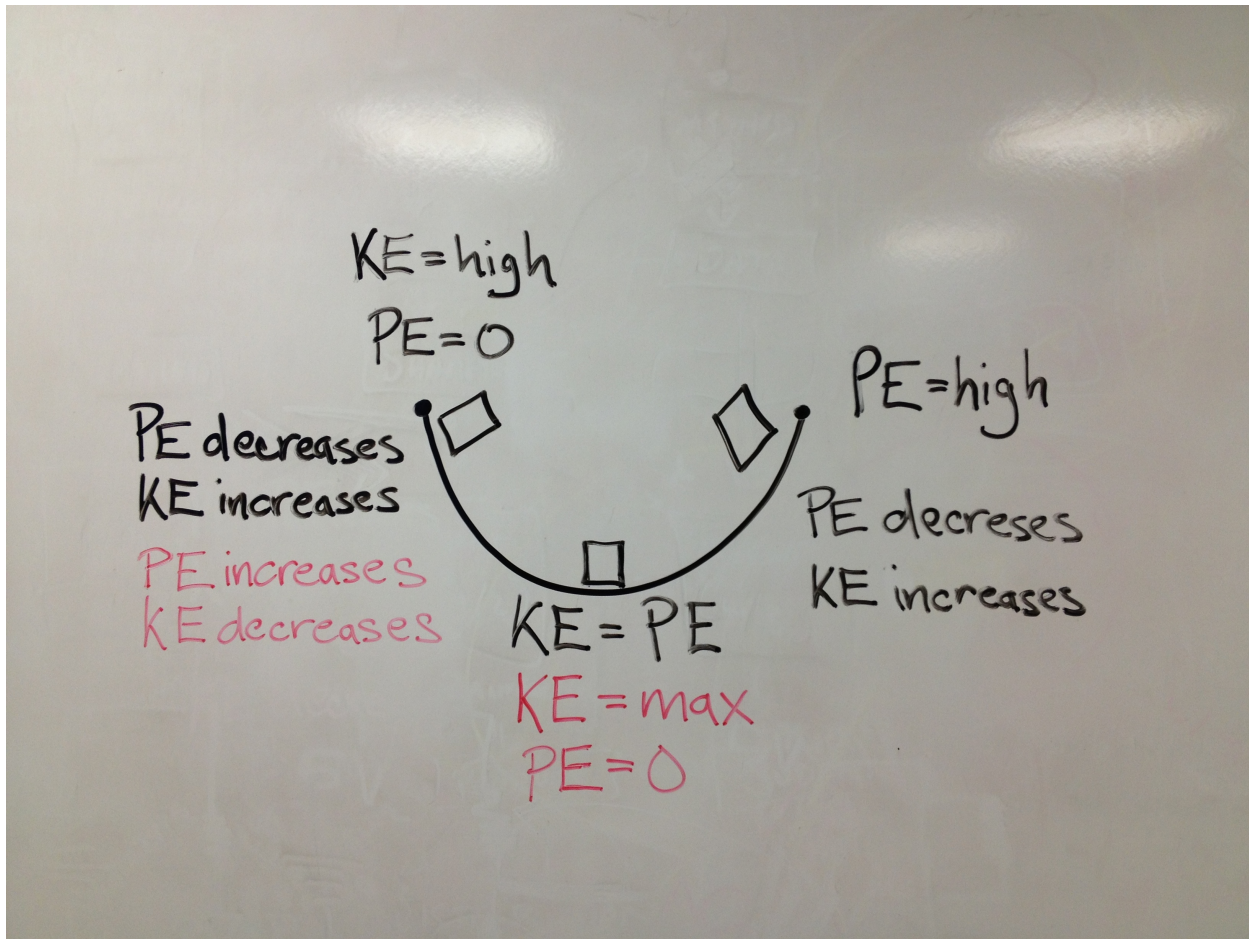 KE=high
PE=0
PE=high
PE decreases
KE increases
PE increases
KE decreases
PE decreses
KE increases
KE = PE
KE = max
PE = 0